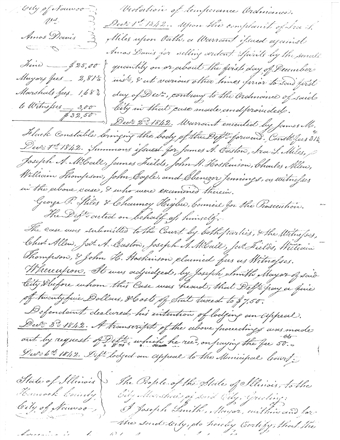 City of Nauvoo
vs.
Amos Davis
Fine $25,00
Mayors fees 2,81½
Marshals fees 1,68¾
to Witnesses 3,00
$32,50
Violation of Temperance Ordinance.
Decr. 1st 1842. Upon the complaint of Ira S.
Miles upon Oath a Warrant issued against
Amos Davis for selling ardent Spirits by the small
quantity on or about the first day of December
inst. & at various other times prior to said first
day of Decr. contrary to the Ordinance of said
City in that case made and provided.
Decr. 1842. Warrant executed by James M.
Flack Constable bringing the body of the Deft. forward.
Decr. 1842. Summons issued for James S. Easton, Ira S. Miles,
Joseph A. McCall, James Fields, John H. Hoskinson, Charles Allen,
William Thompson, John Eagle and Ebenezer Jennings, as witnesses
in the above case, & who were examined therein.
George P. Stiles & Chauncey Higbee, Council for the Prosecution
The Deft. acted on behalf of himself.
The case was submitted to the Court by both parties, & the Witnesses,
Chas. Allen, Jas. S. Easton, Joseph A. McCall, Jas. Fields, William
Thompson, & John H. Hoskinson claimed fees as Witnesses.
Whereupon It was adjudged, by Joseph Smith Mayor of said
City & before whom this case was heard, that Deft. pay a fine
of twenty five Dollars, & Costs of Court taxed to $7,50.
Defendant declared his intention of lodging an appeal.
Decr. 1842. A transcript of the above proceedings was made
out by request of Deft. which he recd. on paying the fee 50
Decr. 1842. Deft. lodged an appeal to the Municipal Court.
State of Illinois
Hancock County
City of Nauvoo
The People of the State of Illinois, to the
City Marshal of said City Greeting
I Joseph Smith, Mayor, within and for
the said City, do hereby Certify, that the